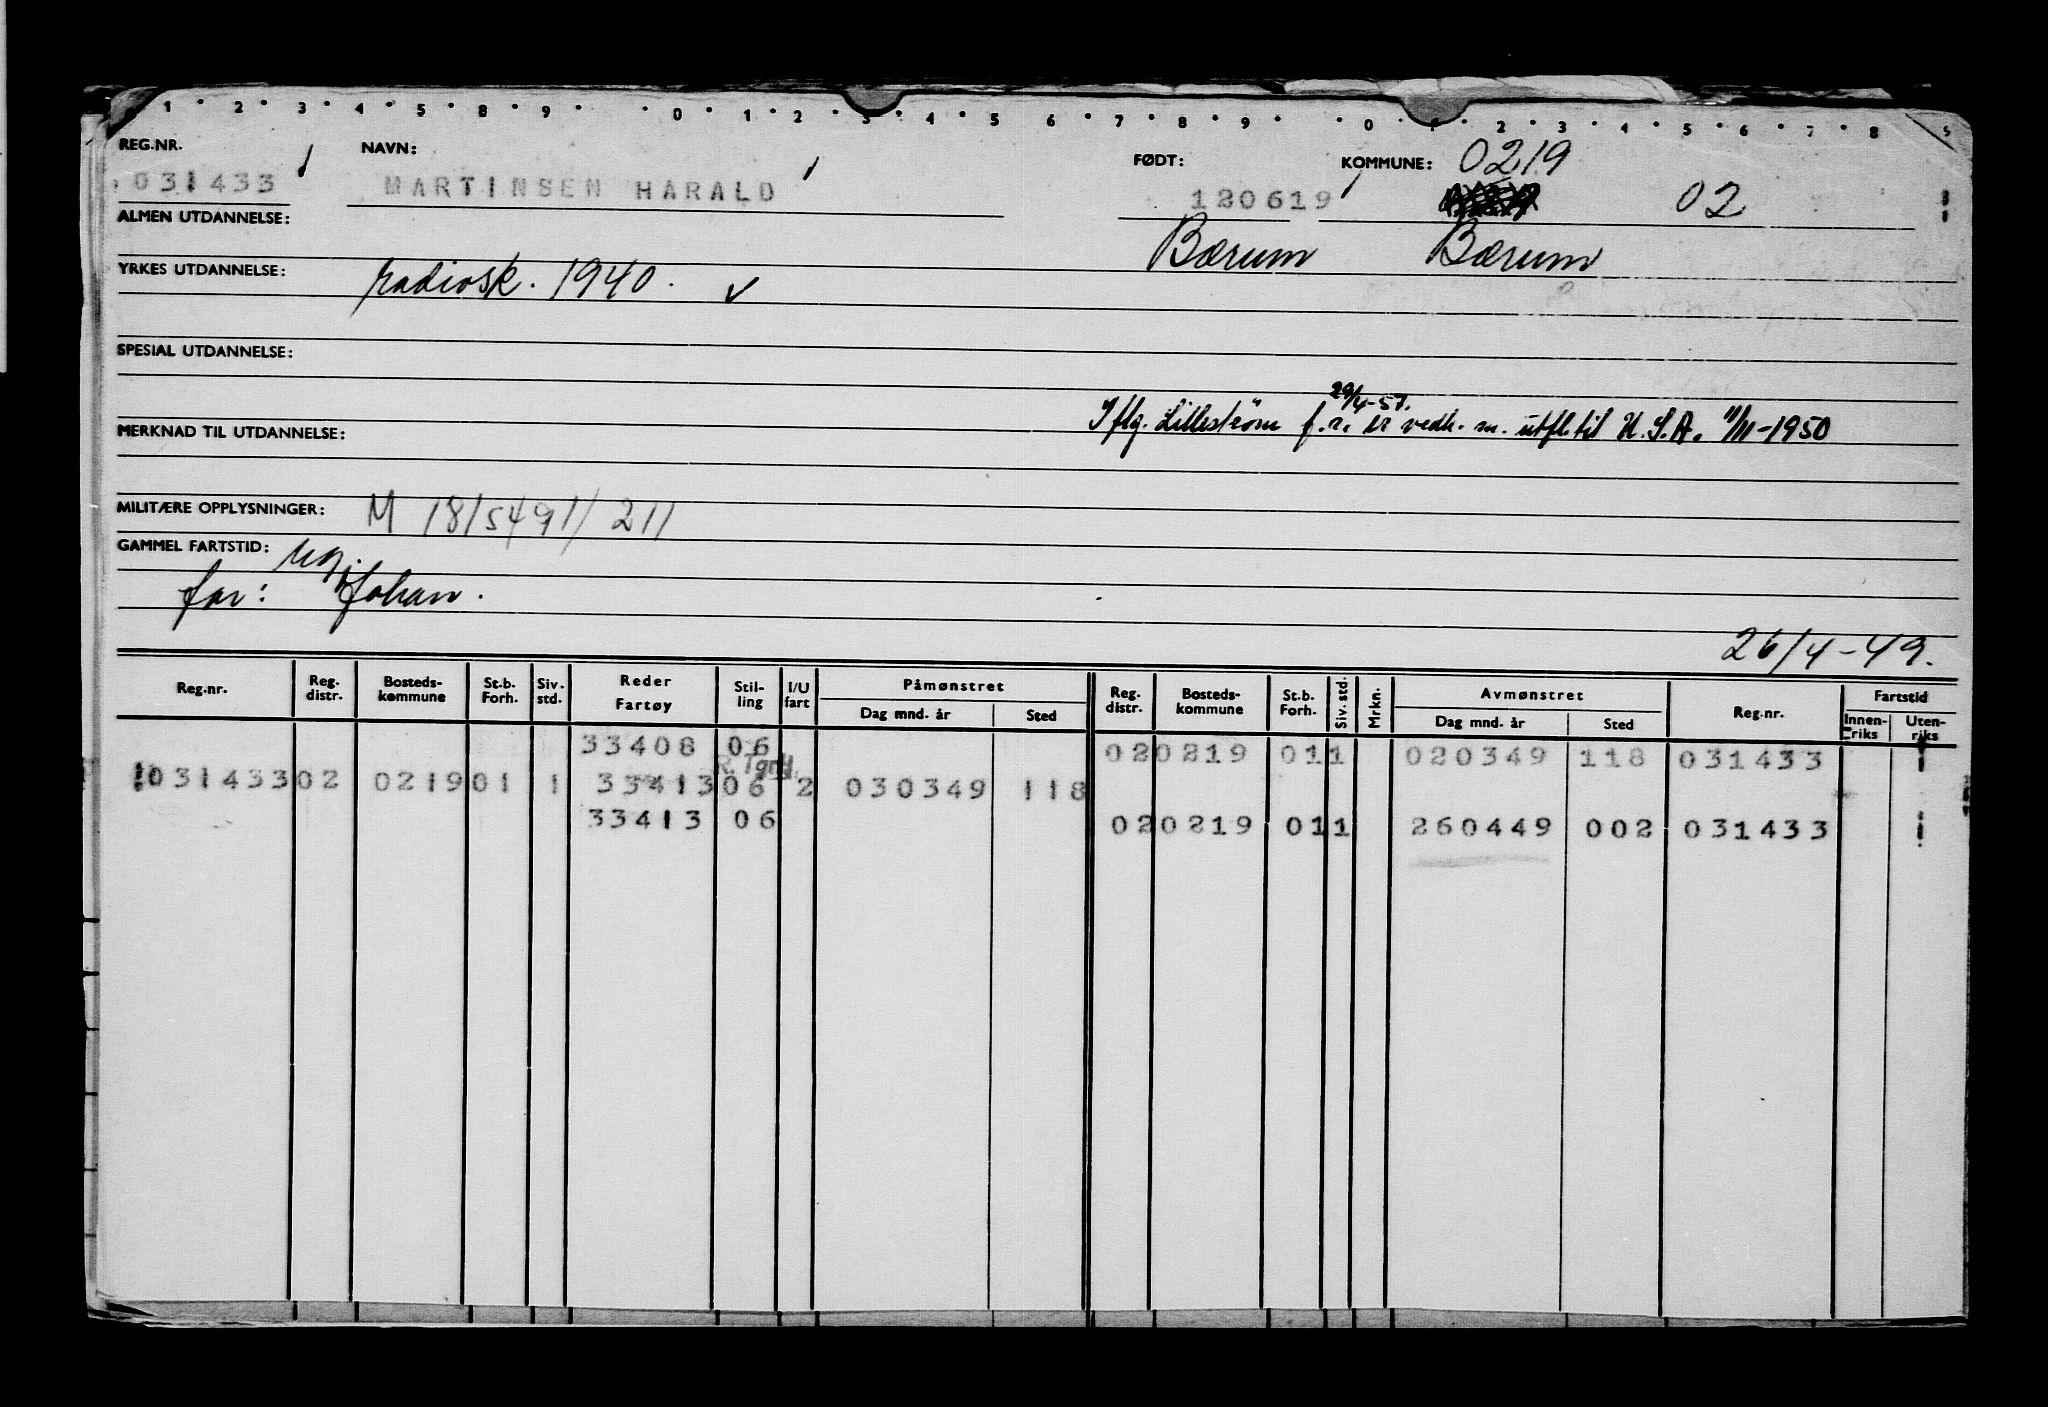 1 2 3 4 5 8 9 0 1 2 3 4 5 6 7 8 9 0 1 2 3 4 5 6 7 8 9
REG.NR. NAVN: FØDT: KOMMUNE: 0219
031433 MARTINSEN HARALD 120619 02
ALMEN UTDANNELSE: Bærum Bærum
YRKES UTDANNELSE: radiosk. 1940.
SPESIAL UTDANNELSE:
29/4-57.
Iflg. Lillestrøm f.r. er vedk. m. utfl. til U.S.A. 11/11-1950
MERKNAD TIL UTDANNELSE:
MILITÆRE OPPLYSNINGER: M 18/5491/211
GAMMEL FARTSTID:
far: Johan.
26/4-49.
Reg.nr. Reg. distr. Bosteds- kommune St.b. Forh. Siv. std. Reder Fartøy Stil- ling I/U fart Påmønstret Dag mnd. år Sted Reg. distr. Bosteds- kommune St.b. Forh. Siv. std. Mrkn. Avmønstret Dag mnd. år Sted Reg.nr. Fartstid Innen- riks Uten- riks
33408 06 02 0219 01 1 020349 118 031433
R. Tgrf.
031433 02 0219 01 1 33413 06 2 030349 118
33413 06 02 0219 01 1 260449 002 031433